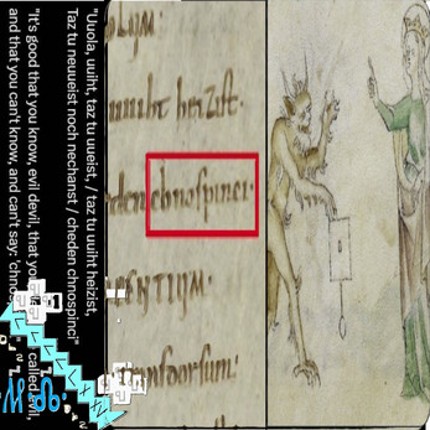 "Uuola, uuiht, taz tu uueist, / taz tu uuiht heizist,
Taz tu neuueist noch nechanst / cheden chnospinci"
"It's good that you know, evil devil, that you called evil,
and that you can't know, and can't say: 'chnos
uuiht heizist·
den chnospinci·
ENTIUM·